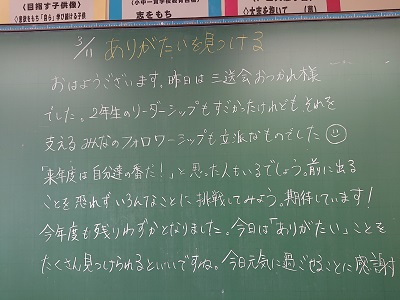 <目指す子供像>
小中一貫学校教育目標
志をもち
3/11 ありがたいを見つける
おはようございます。昨日は三送会おつかれ様
でした。2年生のリーダーシップもすごかったけれども、それを
支えるみんなのフォロワーシップも立派なものでした
「来年度は自分達の番だ!」と思った人もいるでしょう。前に出る
ことを恐れずいろんなことに挑戦してみよう。期待しています!
今年度も残りわずかとなりました。今日は「ありがたい」ことを
たくさん見つけられるといいですね。今日元気に過ごせることに感謝す